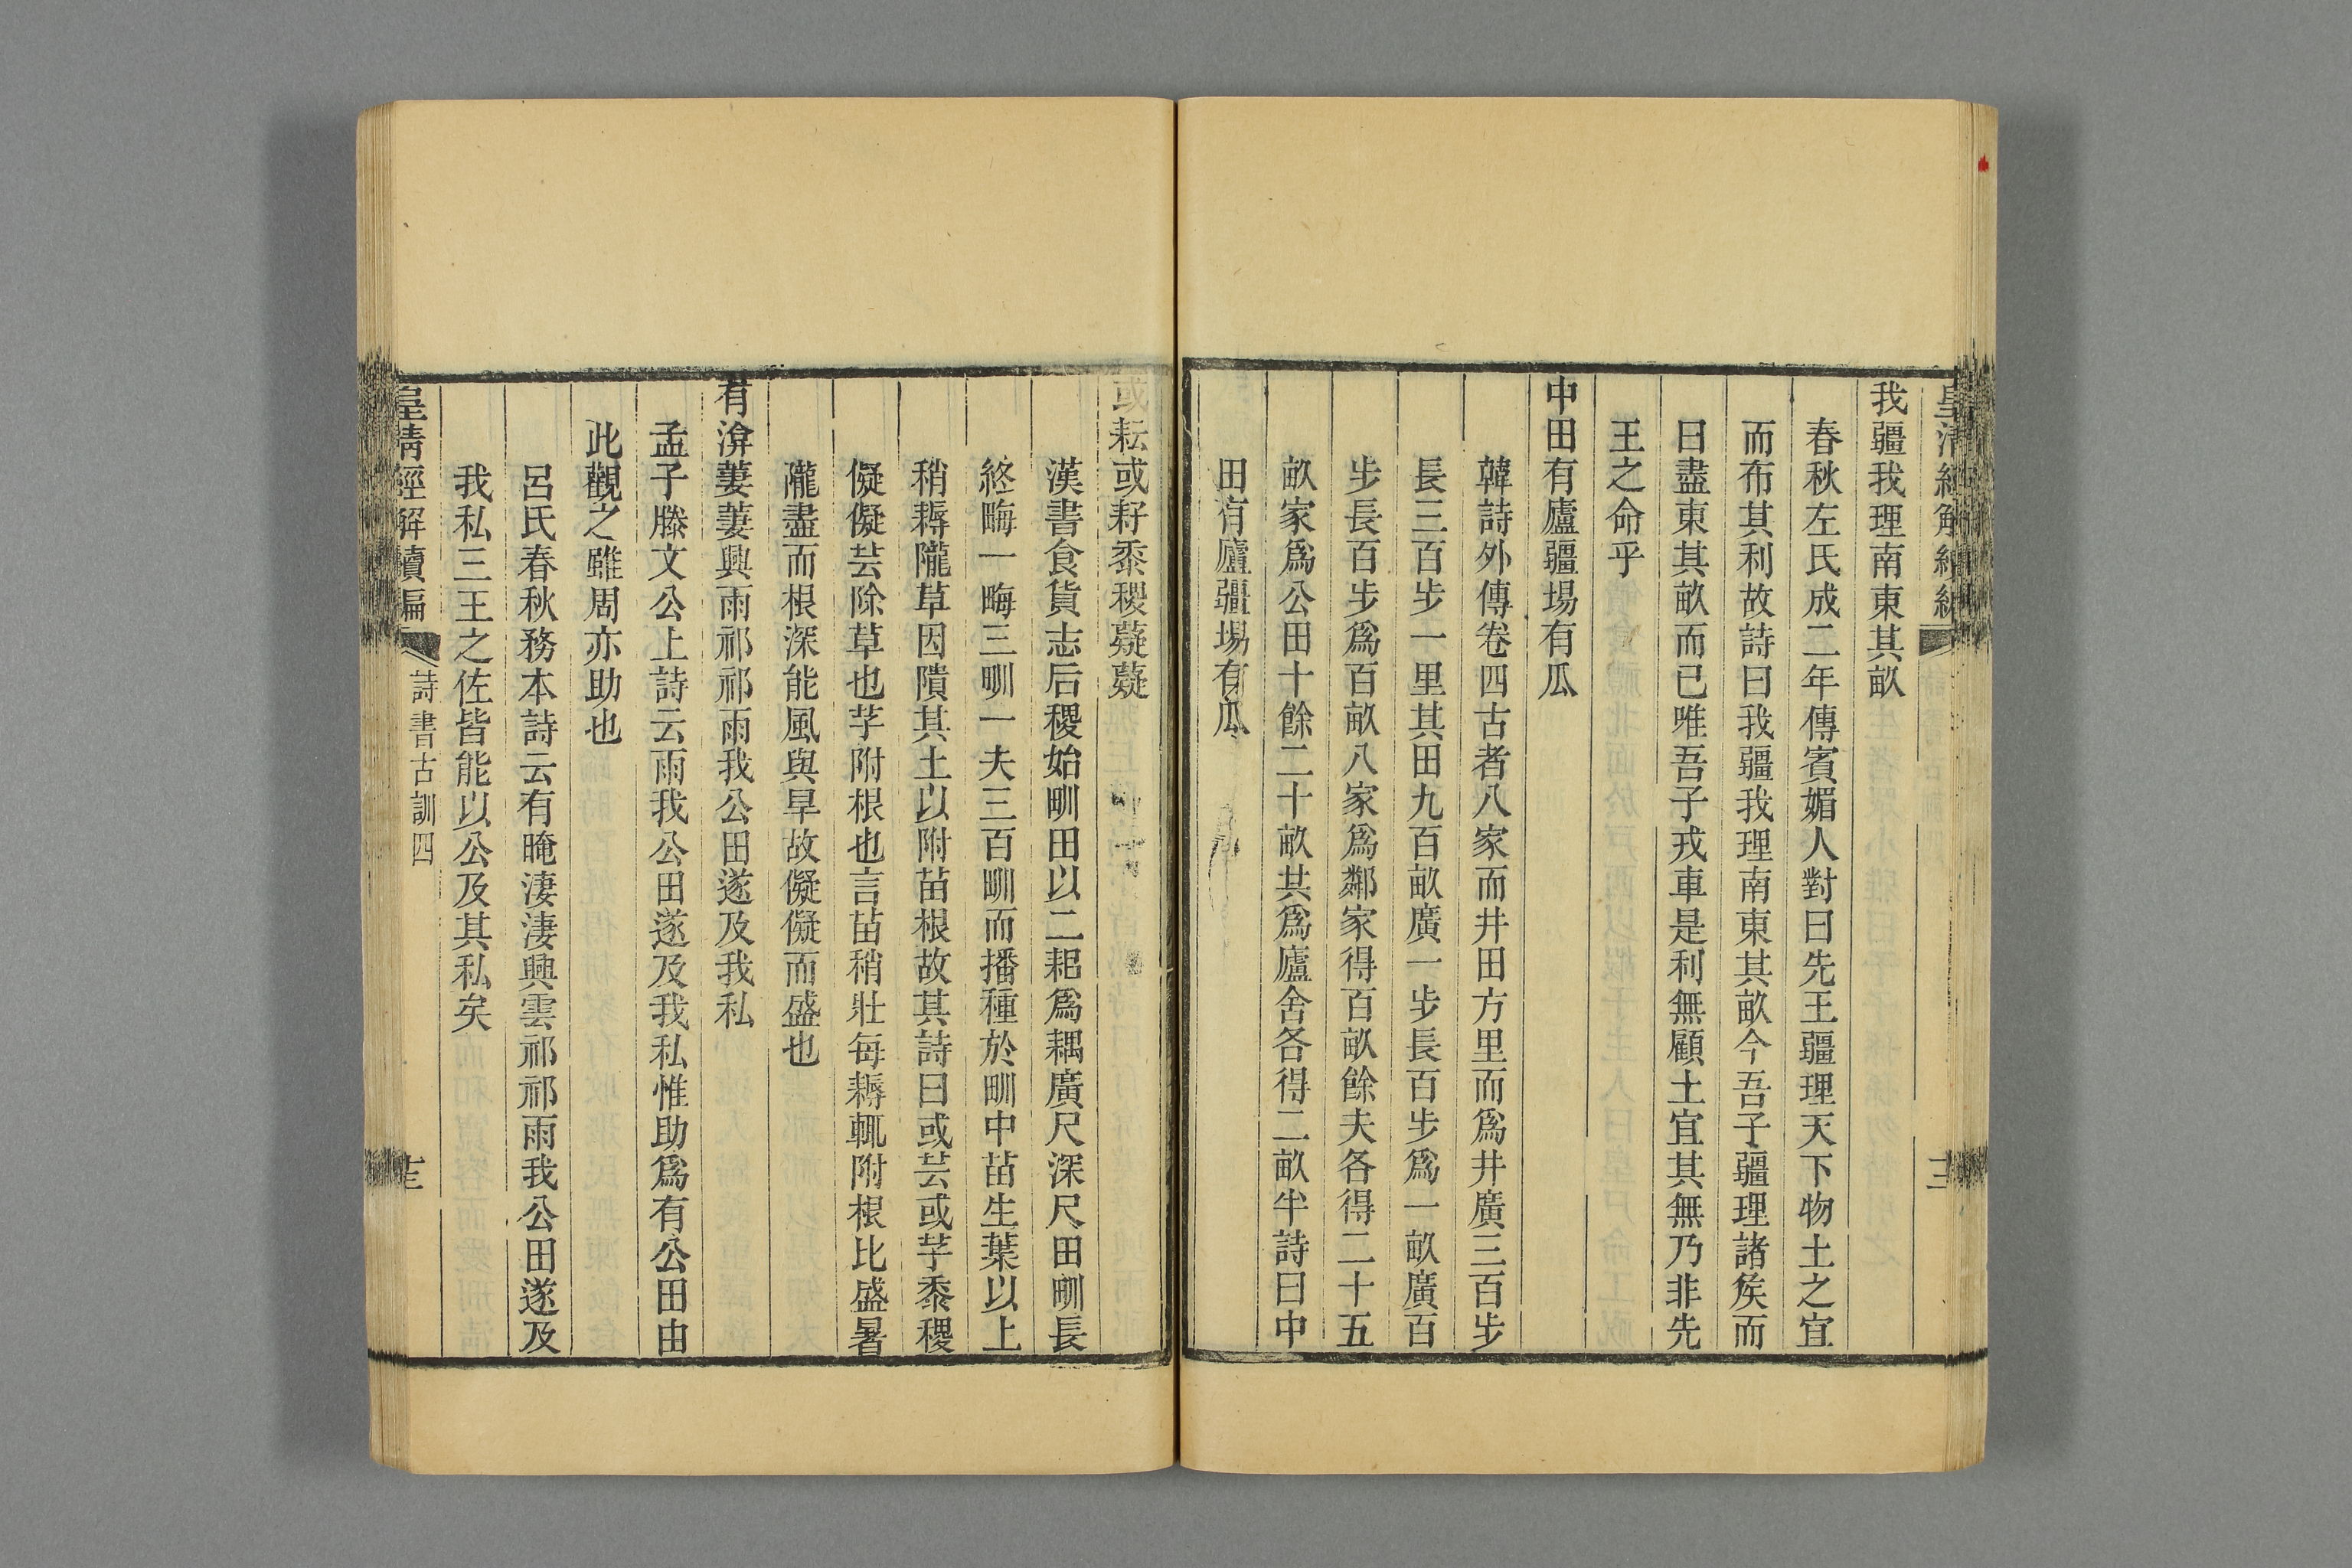 皇清經解續編
十二
我疆我理南東其畝
春秋左氏成二年傳賓媚人對曰先王疆理天下物土之宜
而布其利故詩曰我疆我理南東其畝今吾子疆理諸矦而
曰盡東其畝而已唯吾子戎車是利無顧土宜其無乃非先
王之命乎
中田有廬疆場有瓜
韓詩外傳卷四古者八家而井田方里而爲井廣三百步
長三百步一里其田九百畝廣一步長百步爲一畝廣百
步長百步爲百畝八家爲鄰家得百畝餘夫各得二十五
畝家爲公田十餘二十畝共爲廬舍各得二畝半詩曰中
田有廬疆場有瓜
或耘或耔黍稷薿薿
漢書食貨志后稷始甽田以二耜爲耦廣尺深尺田甽長
終畮一畮三甽一夫三百甽而播種於甽中苗生葉以上
稍耨隴草因隤其土以附苗根故其詩曰或芸或芓黍稷
儗儗芸除草也芓附根也言苗稍壯每耨輒附根比盛暑
隴盡而根深能風與旱故儗儗而盛也
有渰萋萋興雨祁祁雨我公田遂及我私
孟子滕文公上詩云雨我公田遂及我私惟助爲有公田由
此觀之雖周亦助也
呂氏春秋務本詩云有晻淒淒興雲祁祁雨我公田遂及
我私三王之佐皆能以公及其私矣
皇清經解續編
詩書古訓四
十三